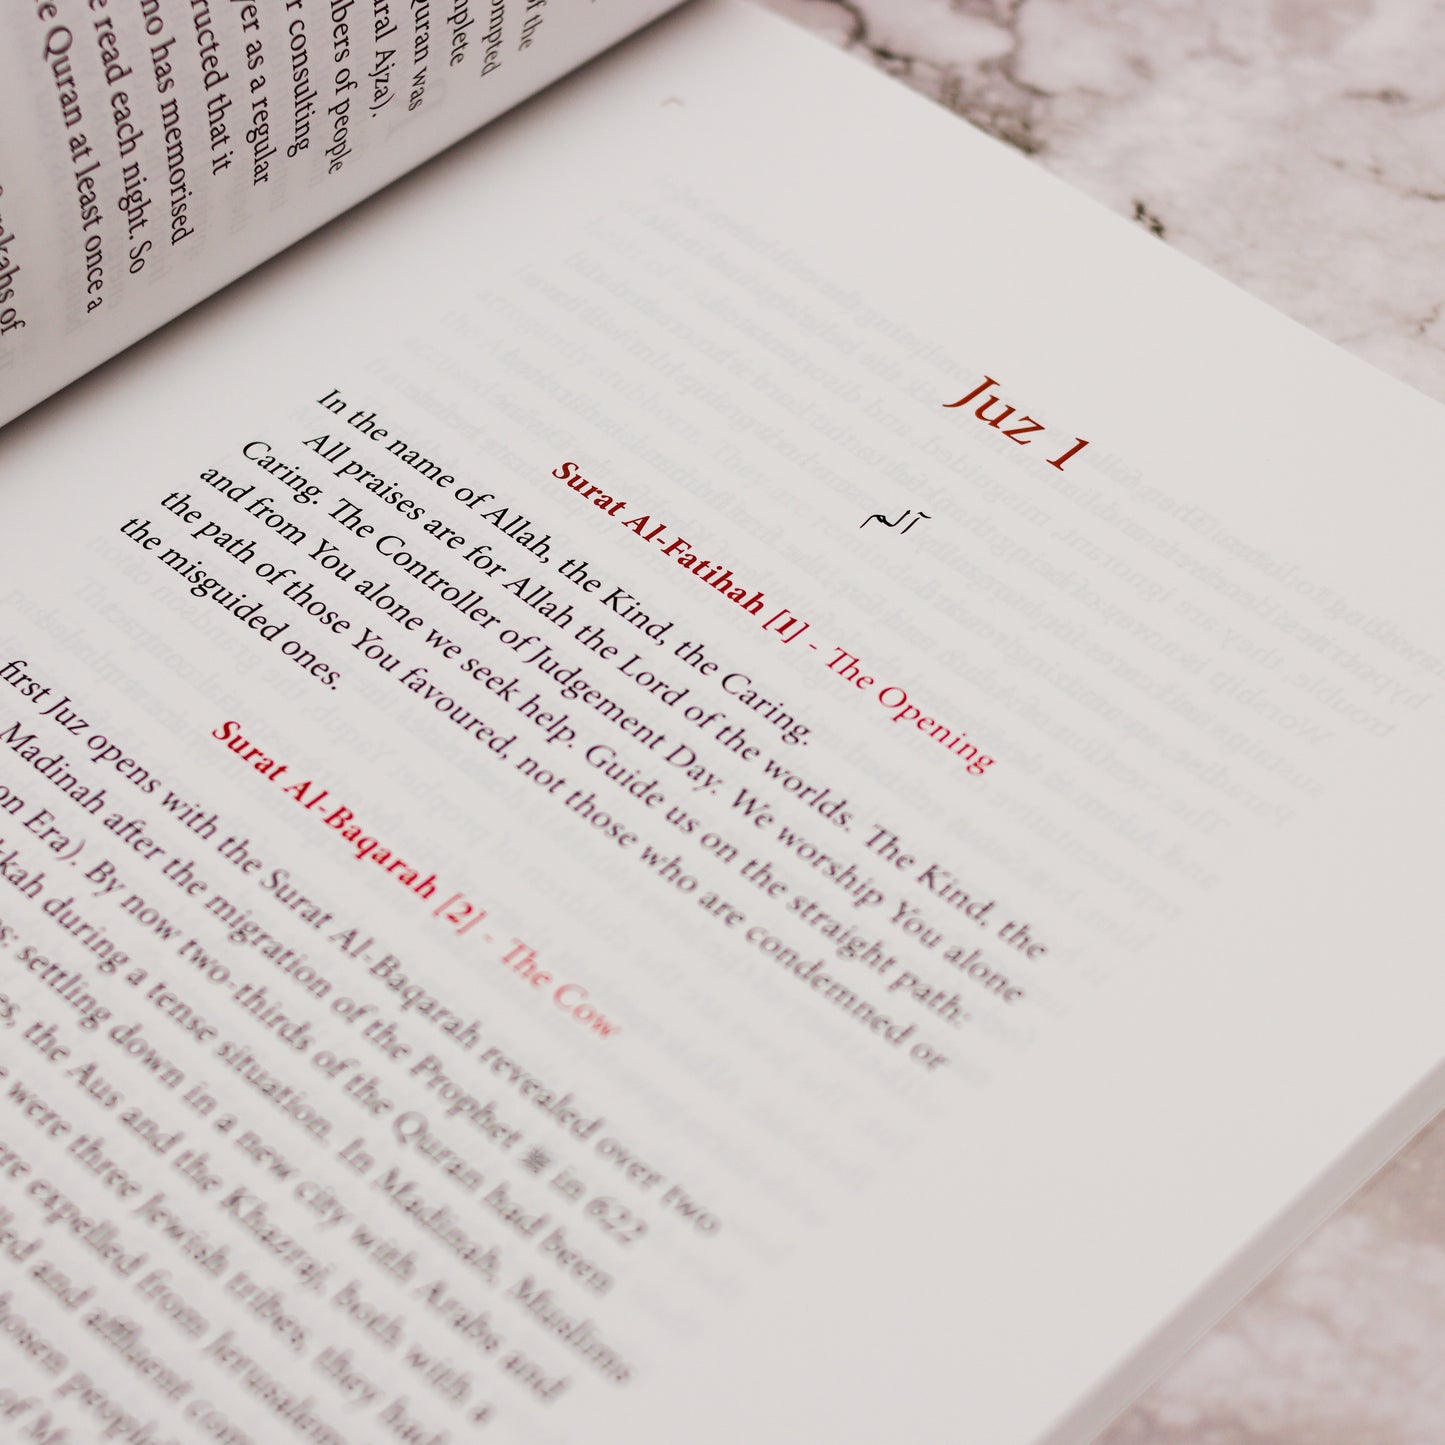 of the
ompted
mplete
Quran was
ral Ajza).
mbers of people
r consulting
yer as a regular
ructed that it
ho has memorised
e read each night. So
e Quran at least once a
rakahs of
Juz 1
آلم
Surat Al-Fatihah [1] - The Opening
In the name of Allah, the Kind, the Caring.
All praises are for Allah the Lord of the worlds. The Kind, the
Caring. The Controller of Judgement Day. We worship You alone
and from You alone we seek help. Guide us on the straight path:
the path of those You favoured, not those who are condemned or
the misguided ones.
Surat Al-Baqarah [2] - The Cow
first Juz opens with the Surat Al-Baqarah revealed over two
Madinah after the migration of the Prophet ﷺ in 622
on Era). By now two-thirds of the Quran had been
kkah during a tense situation. In Madinah, Muslims
s: settling down in a new city with Arabs and
es, the Aus and the Khazraj, both with a
were three Jewish tribes, they had
re expelled from Jerusalem
led and affluent com
hosen people
of M